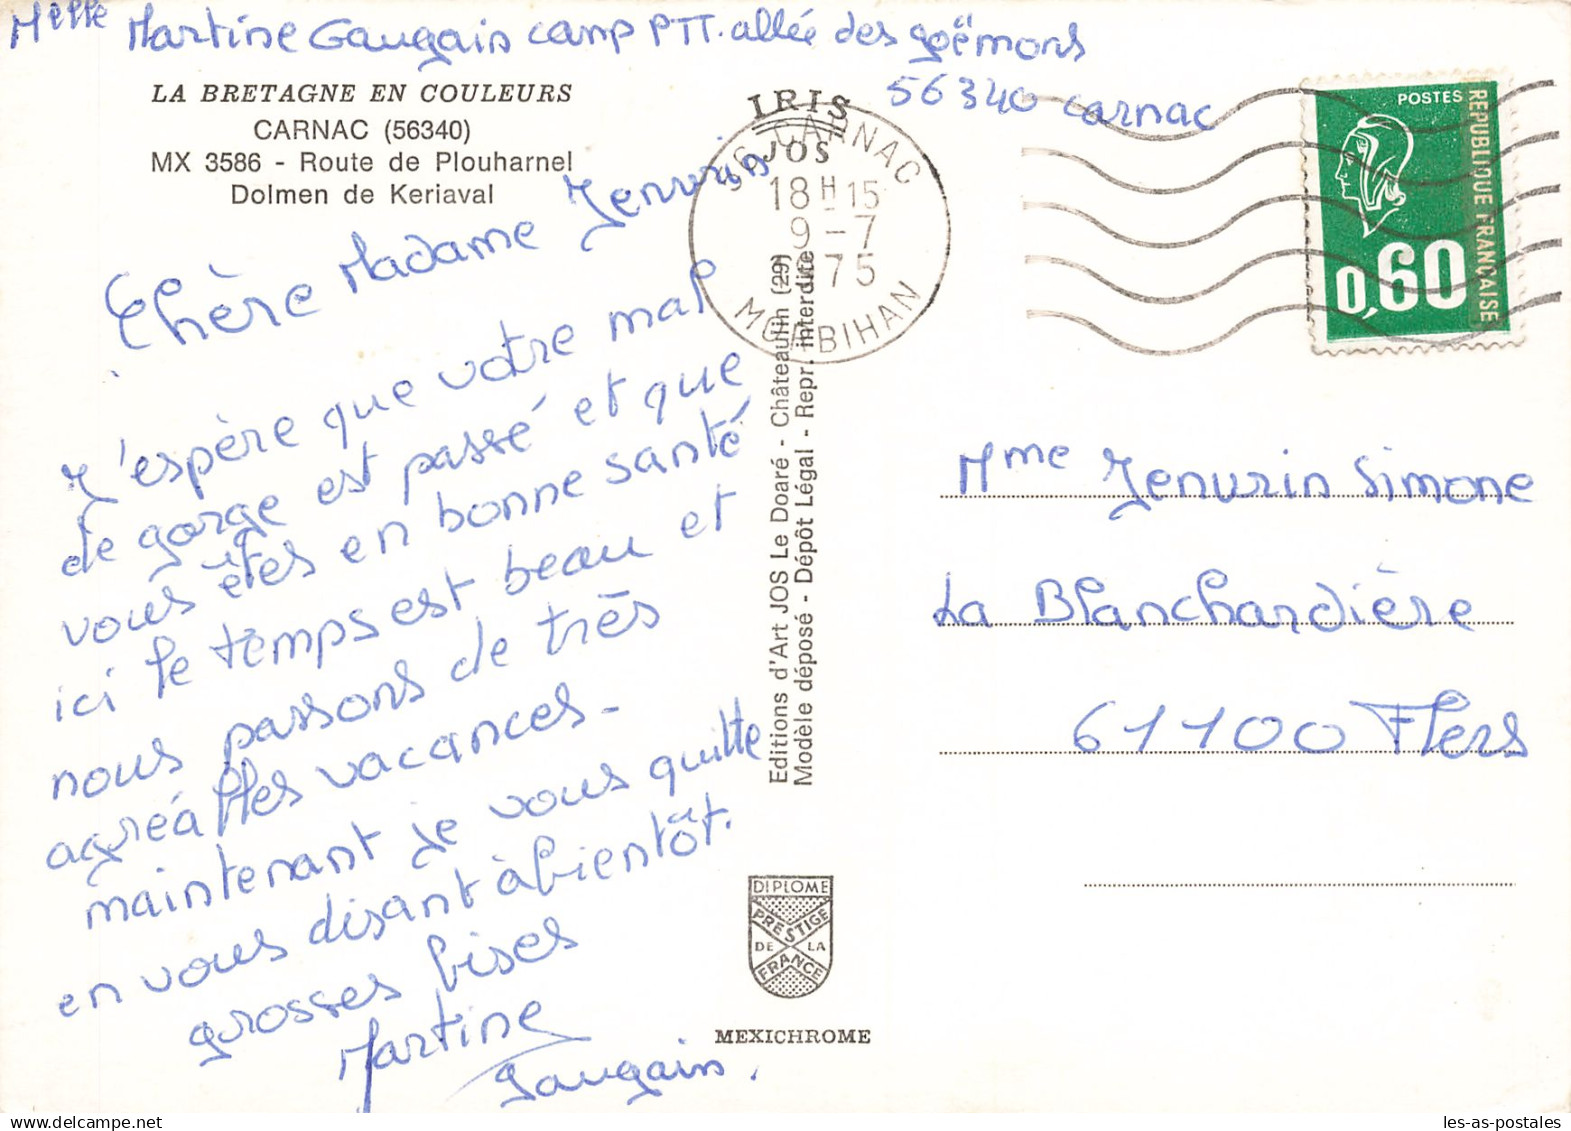 Melle Martine Gaugain camp PTT. allée des goëmons
56340 Carnac
LA BRETAGNE EN COULEURS
CARNAC (56340)
MX 3586 - Route de Plouharnel
Dolmen de Keriaval
IRIS
JOS
56 CARNAC
18 H 15
9-7
1975
MORBIHAN
POSTES
REPUBLIQUE FRANÇAISE
0,60
Chère Madame Jenvrin
J'espère que votre mal
de gorge est passé et que
vous êtes en bonne santé
ici le temps est beau et
nous passons de très
agréables vacances-
maintenant je vous quitte
en vous disant à bientôt.
grosses bises
Martine
Gaugain.
Editions d'Art JOS Le Doaré - Châteaulin (29)
Modèle déposé - Dépôt Légal - Repr. interdite
Mme Jenvrin Simone
La Blanchardière
61100 Flers
DIPLOME
PRESTIGE
DE LA
FRANCE
MEXICHROME
les-as-postales